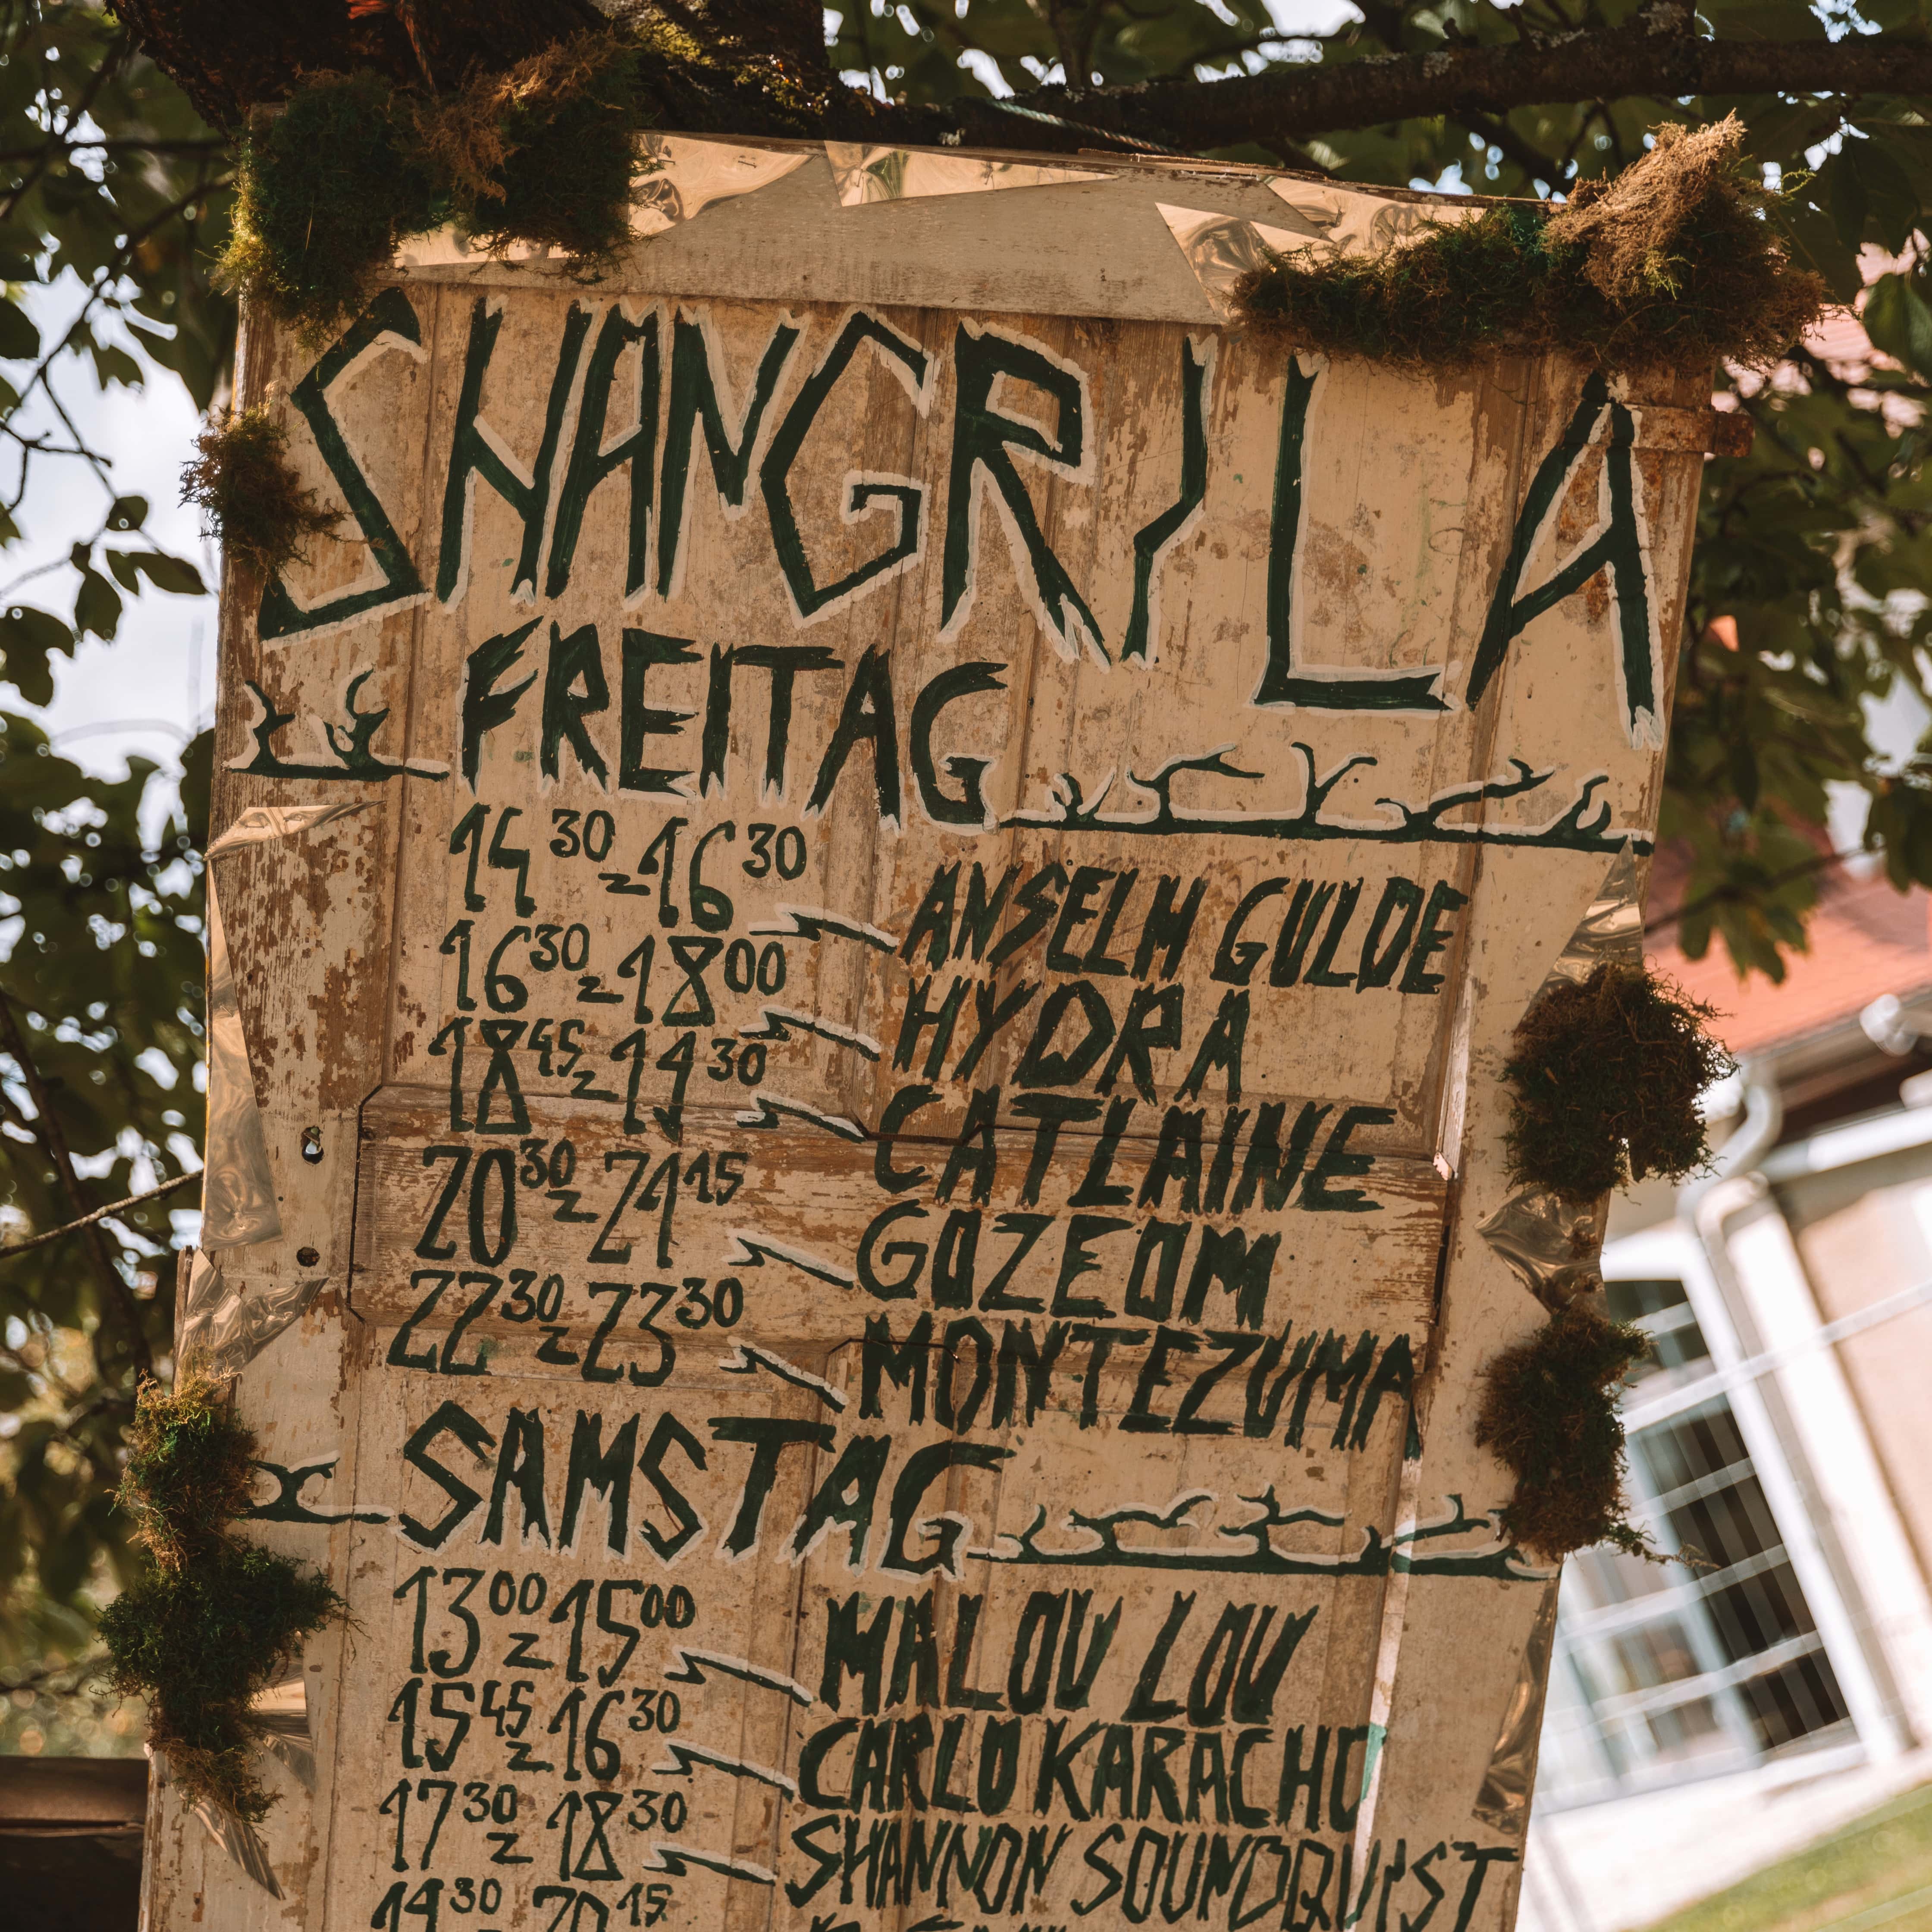 SHANGRI LA
FREITAG
14 30 - 16 30 ANSELM GULDE
16 30 - 18 00 HYDRA
18 45 - 19 30 CATLAINE
20 30 - 21 15 GOZEOM
22 30 - 23 30 MONTEZUMA
SAMSTAG
13 00 - 15 00 MALOU LOU
15 45 - 16 30 CARLO KARACHO
17 30 - 18 30 SHANNON SOUNDQUIST
19 30 20 15